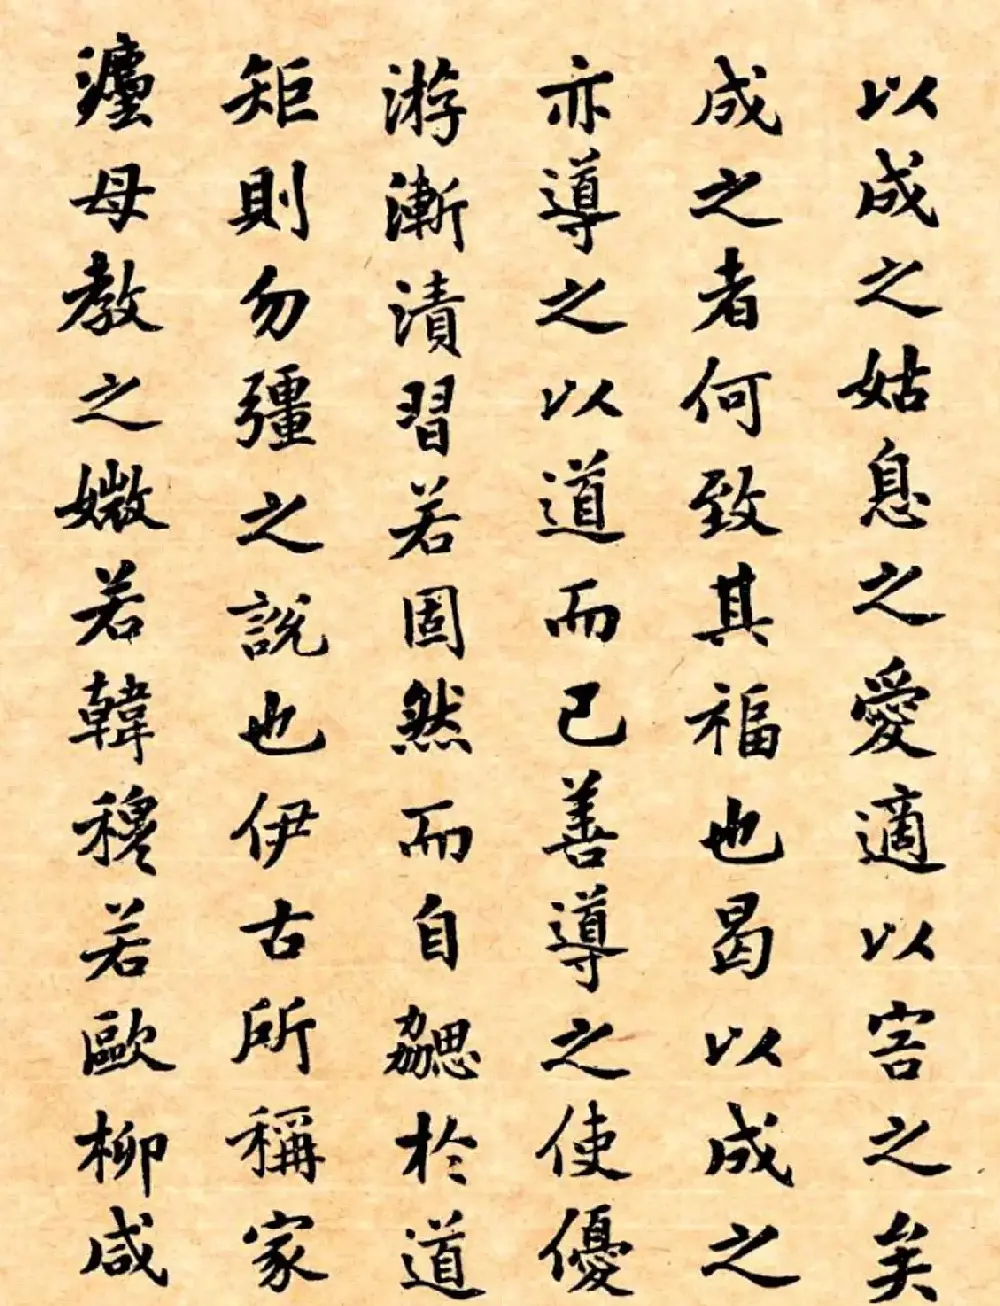 以成之姑息之愛適以害之矣
成之者何致其福也曷以成之
亦導之以道而已善導之使優
游漸漬習若固然而自勰於道
矩則勿彊之說也伊古所稱家
母教之媺若韓穆若歐柳咸